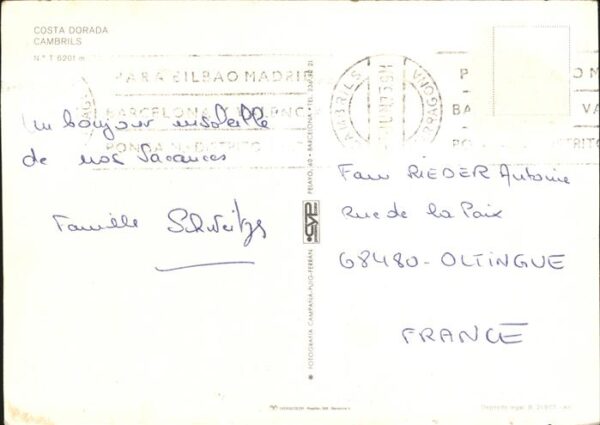 COSTA DORADA
CAMBRILS
N.º T 6201
PARA BILBAO MADRID
BARCELONA Y VALENC
PONGA N.º DISTRITO
CAMBRILS
Un bonjour ensoleillé
de nos vacances
Famille Schweitzer
Fam RIEDER Antoine
Rue de la Paix
68480 - OLTINGUE
FRANCE
FOTOGRAFIA CAMPAÑA-PUIG-FERRAN
CYP
PELAYO, 40 - BARCELONA - TEL.